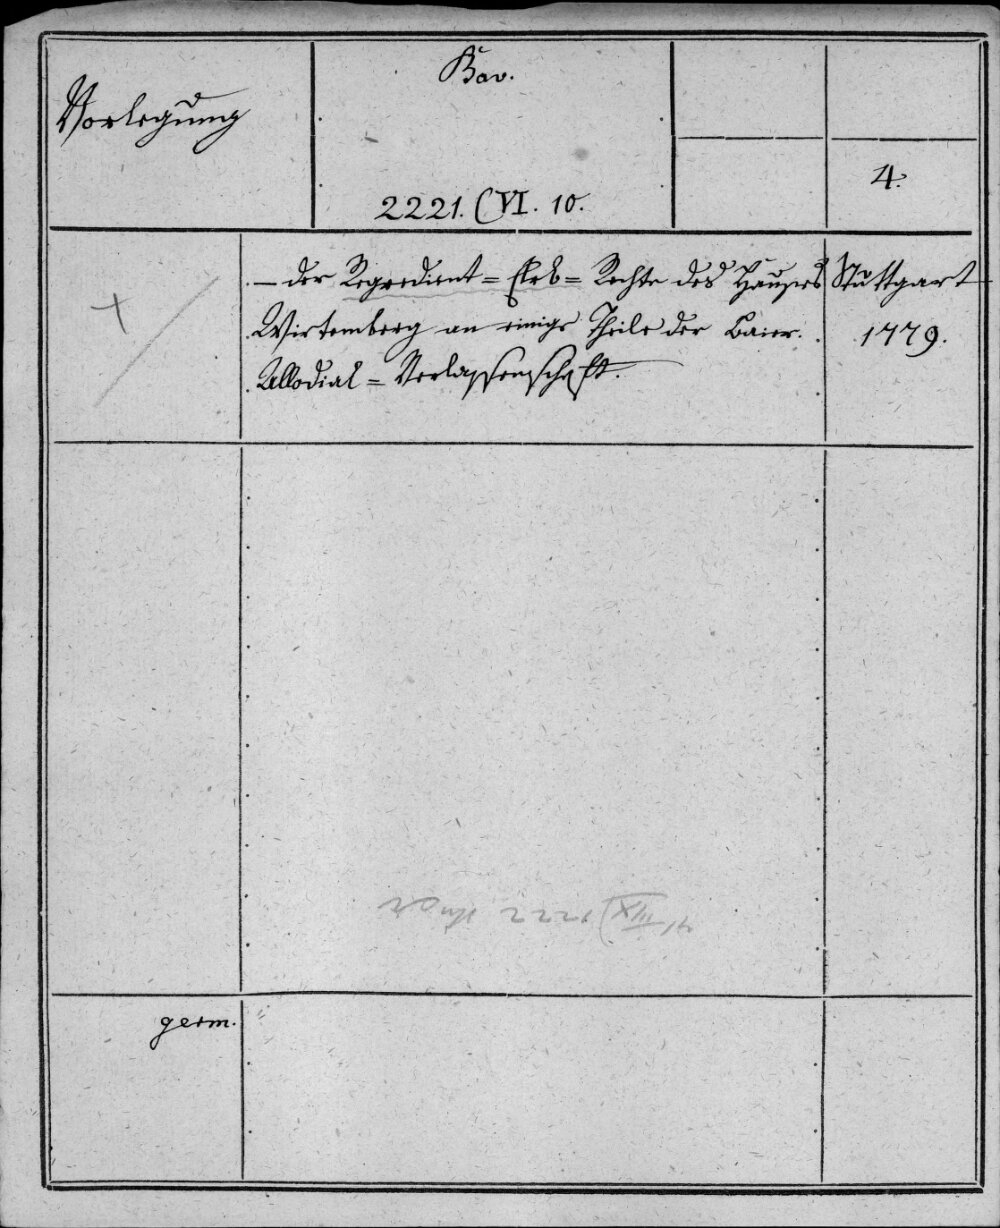 Vorlegung
Bav.
2221. (VI. 10.
4.
— der Regredient = Erb = Rechte des Hauses
Wirtemberg an einige Theile der Baier.
Allodial = Verlassenschaft.
Stuttgart
1779.
+
2221 (XIII, 4
germ.